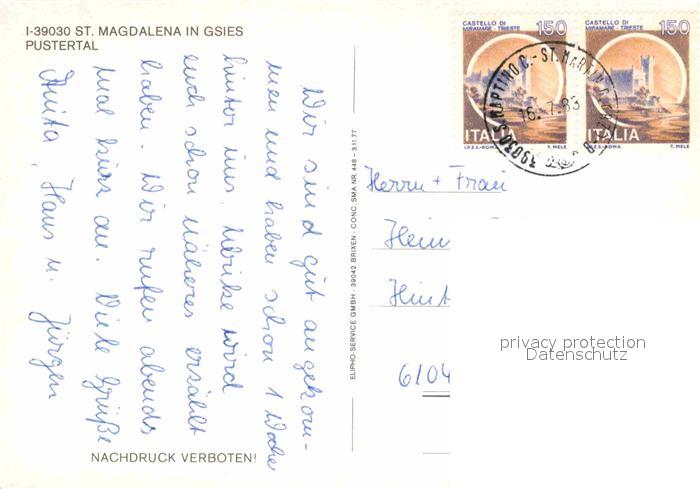 I-39030 ST. MAGDALENA IN GSIES
PUSTERTAL
Wir sind gut angekom-
men und haben schon 1 Woche
hinter uns. Ulrike wird
euch schon näheres erzählt
haben. Wir rufen abends
mal kurz an. Viele Grüße
Anita, Hans u. Jürgen
NACHDRUCK VERBOTEN!
ELIPHO-SERVICE GMBH - 39042 BRIXEN - CONC. SMA NR. 448 - 3.11.77
CASTELLO DI
MIRAMARE - TRIESTE
150
ITALIA
I.P.Z.S. - ROMA T. MELE
CASTELLO DI
MIRAMARE - TRIESTE
150
ITALIA
I.P.Z.S. - ROMA T. MELE
39030 S. MARTINO C. - ST. MARTIN
16.7.83
Herrn + Frau
Hein
Hint
6104
privacy protection
Datenschutz